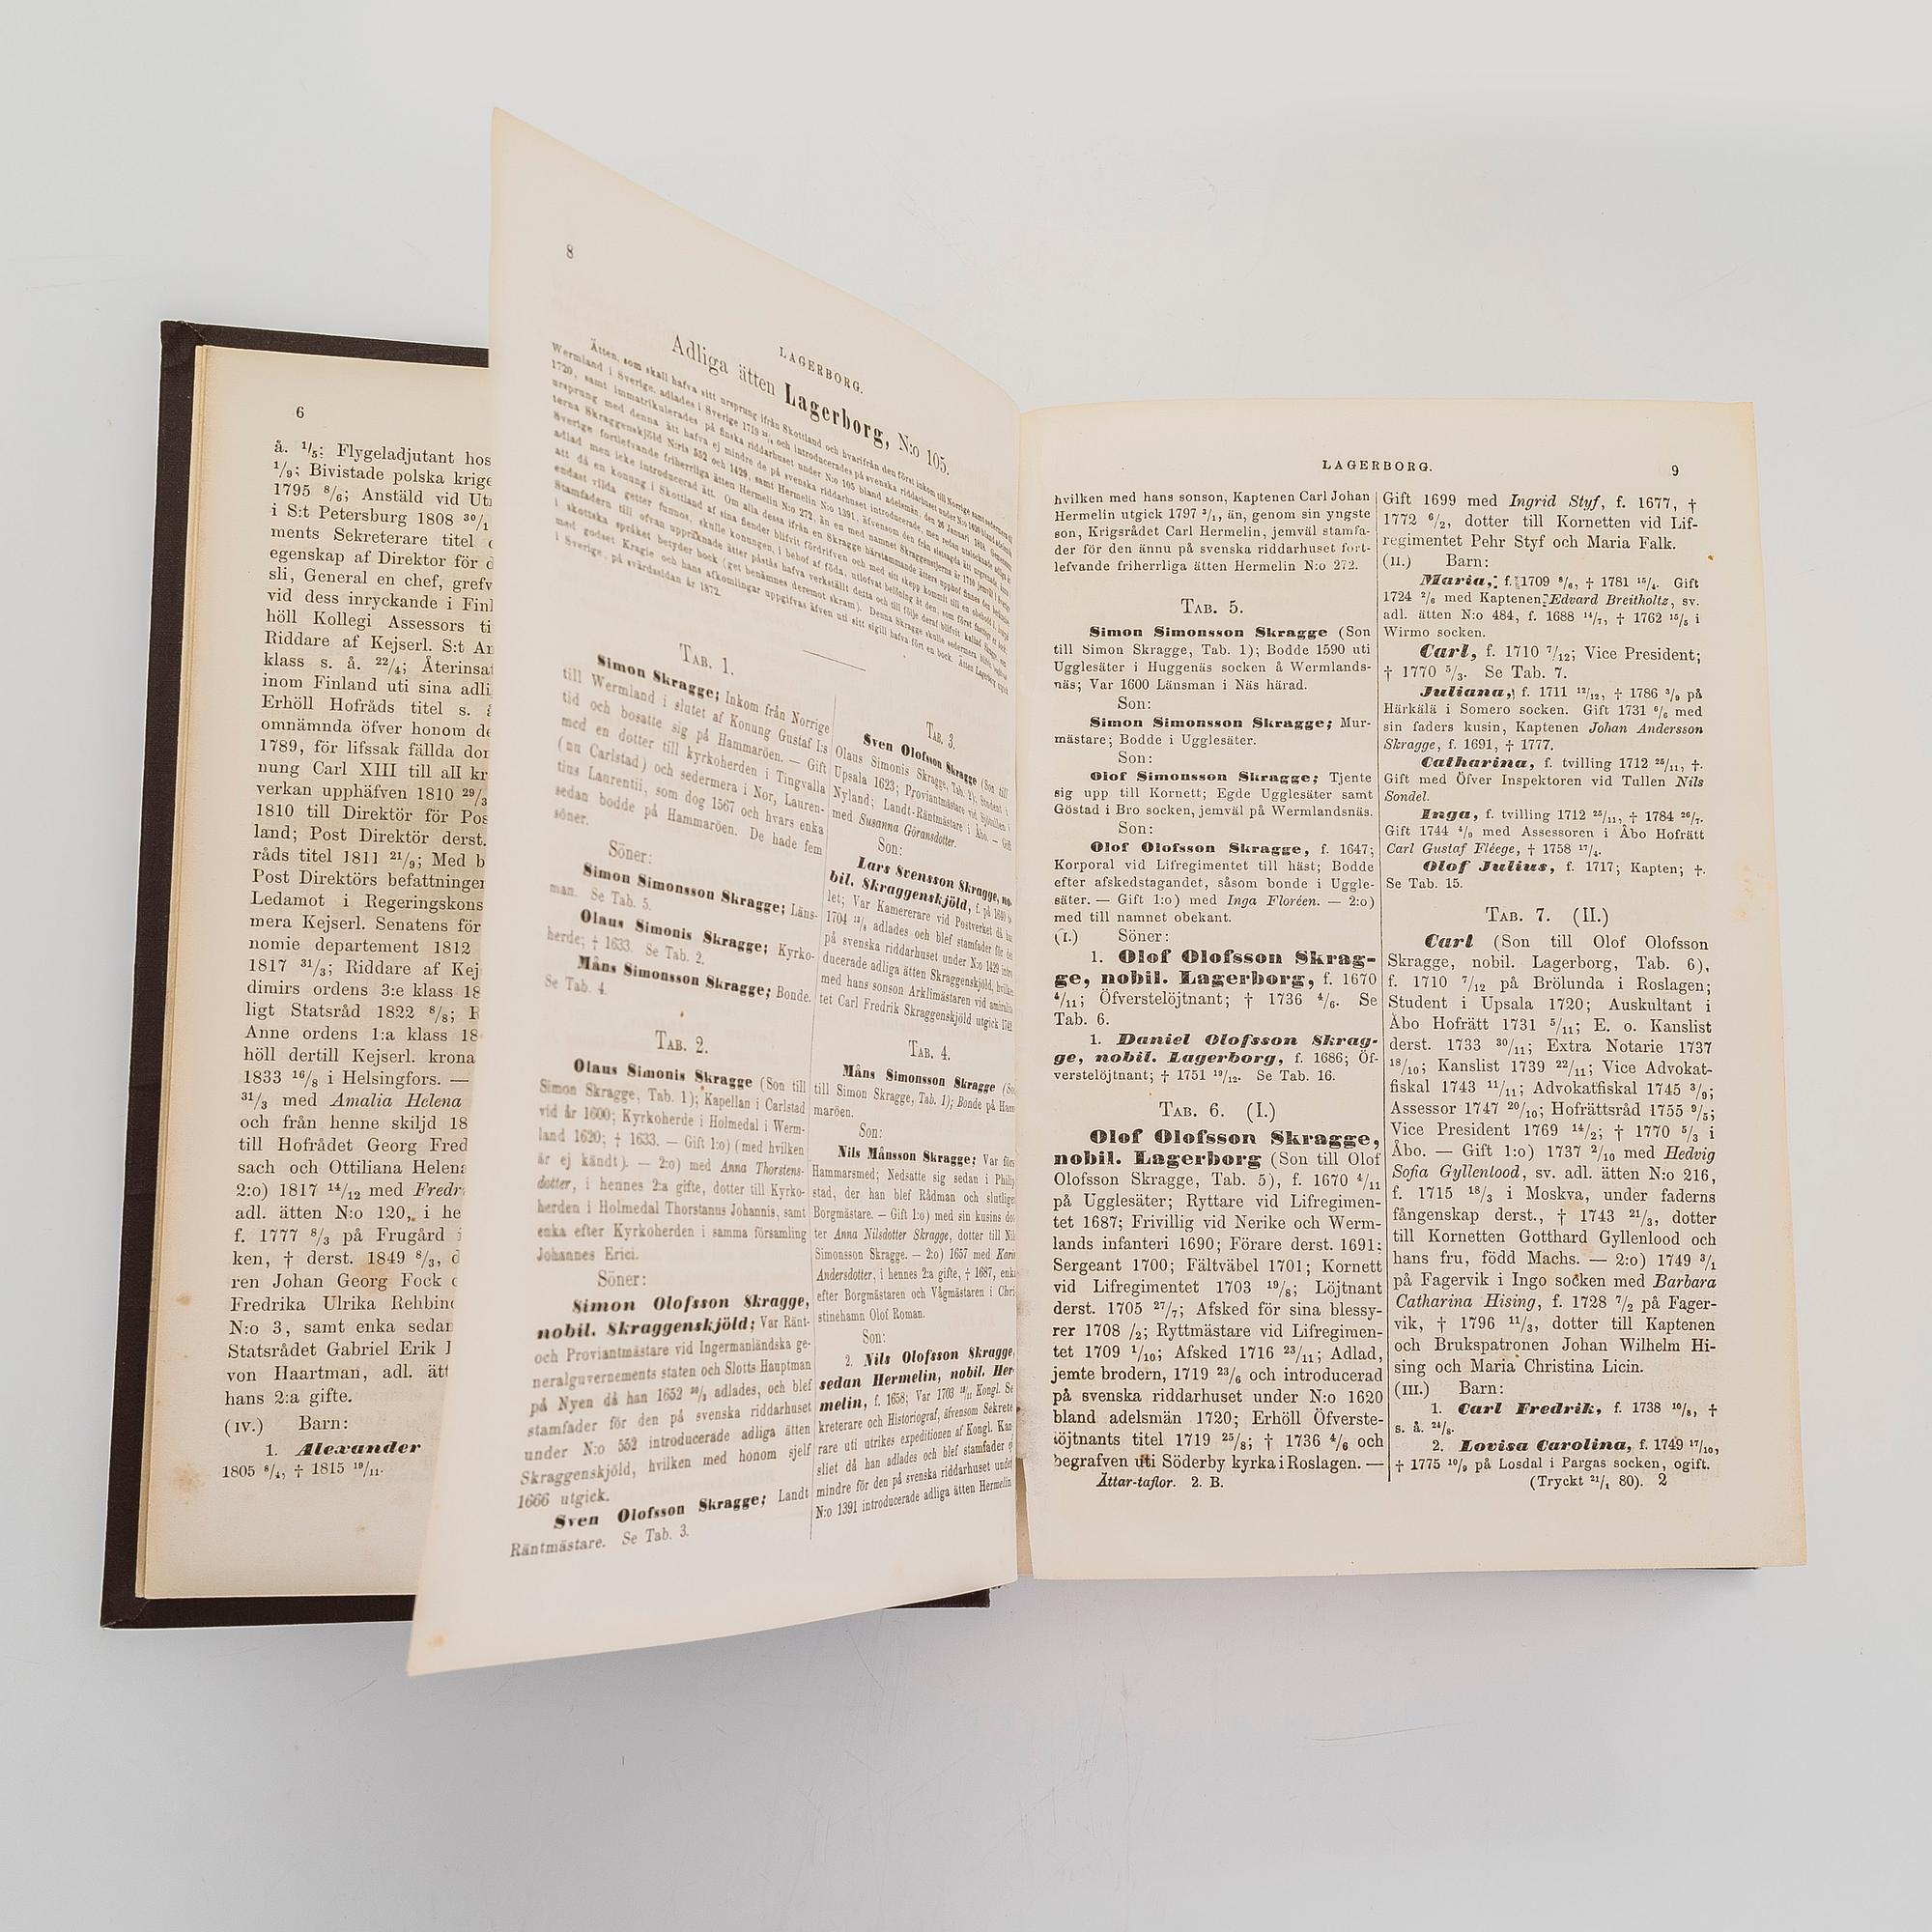 6
å. ¹/₅; Flygeladjutant hos
¹/₉; Bivistade polska krige
1795 ⁸/₆; Anstäld vid Ut
i S:t Petersburg 1808 ³⁰/₁
ments Sekreterare titel
egenskap af Direktör för
sli, General en chef, grefv
vid dess inryckande i Finl
höll Kollegi Assessors ti
Riddare af Kejserl. S:t An
klass s. å. ²²/₄; Återinsat
inom Finland uti sina adli
Erhöll Hofråds titel s. å
omnämnda öfver honom de
1789, för lifssak fällda dom
nung Carl XIII till all kr
verkan upphäfven 1810 ²⁹/₃
1810 till Direktör för Pos
land; Post Direktör derst.
råds titel 1811 ²¹/₉; Med b
Post Direktörs befattninger
Ledamot i Regeringskons
mera Kejserl. Senatens för
nomie departement 1812
1817 ³¹/₃; Riddare af Kej
dimirs ordens 3:e klass 18
ligt Statsråd 1822 ⁸/₈; R
Anne ordens 1:a klass 18
höll dertill Kejserl. krona
1833 ¹⁶/₈ i Helsingfors. —
³¹/₃ med Amalia Helena
och från henne skiljd 18
till Hofrådet Georg Fred
sach och Ottiliana Helena
2:o) 1817 ¹⁴/₁₂ med Fredr
adl. ätten N:o 120, i he
f. 1777 ⁸/₃ på Frugård i
ken, † derst. 1849 ⁸/₃, d
ren Johan Georg Fock
Fredrika Ulrika Rehbind
N:o 3, samt enka sedan
Statsrådet Gabriel Erik
von Haartman, adl. ätt
hans 2:a gifte.
(IV.) Barn:
1. Alexander
1805 ⁸/₄, † 1815 ¹⁹/₁₁.
8
LAGERBORG.
Adliga ätten Lagerborg, N:o 105.
Ätten, som skall hafva sitt ursprung ifrån Skottland och hvarifrån den först inkom till Norrige samt
Wermland i Sverige, adlades i Sverige 1719 och introducerades på svenska riddarhuset under N:o 1620 bland adelsmän
1720, samt immatrikulerades på finska riddarhuset under N:o 105 bland adelsmän, den 26 Januari 1818.
i Sverige, på svärdssidan år 1872.
TAB. 1.
Simon Skragge; Inkom från Norrige
till Wermland i slutet af Konung Gustaf I:s
tid och bosatte sig på Hammaröen. — Gift
med en dotter till kyrkoherden i Tingvalla
(nu Carlstad) och sedermera i Nor, Lauren-
tius Laurentii, som dog 1567 och hvars enka
sedan bodde på Hammaröen. De hade fem
söner.
Söner:
Simon Simonsson Skragge; Läns-
man. Se Tab. 5.
Olaus Simonis Skragge; Kyrko-
herde; † 1633. Se Tab. 2.
Måns Simonsson Skragge; Bonde.
Se Tab. 4.
TAB. 2.
Olaus Simonis Skragge (Son till
Simon Skragge, Tab. 1); Kapellan i Carlstad
vid år 1600; Kyrkoherde i Holmedal i Werm-
land 1620; † 1633. — Gift 1:o) (med hvilken
är ej kändt). — 2:o) med Anna Thorstens-
dotter, i hennes 2:a gifte, dotter till Kyrko-
herden i Holmedal Thorstanus Johannis, samt
enka efter Kyrkoherden i samma församling
Johannes Erici.
Söner:
Simon Olofsson Skragge,
nobil. Skraggenskjöld; Var Ränt-
och Proviantmästare vid Ingermanländska ge-
neralguvernements staten och Slotts Hauptman
på Nyen då han 1652 ²⁰/₃ adlades, och blef
stamfader för den på svenska riddarhuset
under N:o 552 introducerade adliga ätten
Skraggenskjöld, hvilken med honom sjelf
1666 utgick.
Sven Olofsson Skragge; Landt
Räntmästare. Se Tab. 3.
TAB. 3.
Sven Olofsson Skragge (Son till
Olaus Simonis Skragge, Tab. 2); Student i
Upsala 1623; Proviantmästare vid Sjötullen i
Nyland; Landt-Räntmästare i Åbo. — Gift
med Susanna Göransdotter.
Son:
Lars Svensson Skragge, no-
bil. Skraggenskjöld, f. på 1640
let; Var Kamererare vid Postverket då han
1704 adlades och blef stamfader för den
på svenska riddarhuset under N:o 1429 intro
ducerade adliga ätten Skraggenskjöld, hvilken
med hans sonson Arklimästaren vid amiralite
tet Carl Fredrik Skraggenskjöld utgick
TAB. 4.
Måns Simonsson Skragge (Son
till Simon Skragge, Tab. 1); Bonde på Ham
maröen.
Son:
Nils Månsson Skragge; Var förs
Hammarsmed; Nedsatte sig sedan i Philip
stad, der han blef Rådman och slutligen
Borgmästare. — Gift 1:o) med sin kusins dot
ter Anna Nilsdotter Skragge, dotter till Nils
Simonsson Skragge. — 2:o) 1657 med Karin
Andersdotter, i hennes 2:a gifte, † 1687, enka
efter Borgmästaren och Vågmästaren i Chri
stinehamn Olof Roman.
Son:
2. Nils Olofsson Skragge,
sedan Hermelin, nobil. Her
melin, f. 1658; Var 1703 Kongl. Se
kreterare och Historiograf, äfvensom Sekrete
rare uti utrikes expeditionen af Kongl. Kan
sliet då han adlades och blef stamfader ej
mindre för den på svenska riddarhuset under
N:o 1391 introducerade adliga ätten Hermelin
LAGERBORG.
9
hvilken med hans sonson, Kaptenen Carl Johan
Hermelin utgick 1797 ³/₁, än, genom sin yngste
son, Krigsrådet Carl Hermelin, jemväl stamfa-
der för den ännu på svenska riddarhuset fort-
lefvande friherrliga ätten Hermelin N:o 272.
TAB. 5.
Simon Simonsson Skragge (Son
till Simon Skragge, Tab. 1); Bodde 1590 uti
Ugglesäter i Huggenäs socken å Wermlands-
näs; Var 1600 Länsman i Näs härad.
Son:
Simon Simonsson Skragge; Mur-
mästare; Bodde i Ugglesäter.
Son:
Olof Simonsson Skragge; Tjente
sig upp till Kornett; Egde Ugglesäter samt
Göstad i Bro socken, jemväl på Wermlandsnäs.
Son:
Olof Olofsson Skragge, f. 1647;
Korporal vid Lifregimentet till häst; Bodde
efter afskedstagandet, såsom bonde i Uggle-
säter. — Gift 1:o) med Inga Floréen. — 2:o)
med till namnet obekant.
(I.) Söner:
1. Olof Olofsson Skrag-
ge, nobil. Lagerborg, f. 1670
⁴/₁₁; Öfverstelöjtnant; † 1736 ⁴/₆. Se
Tab. 6.
1. Daniel Olofsson Skrag-
ge, nobil. Lagerborg, f. 1686; Öf-
verstelöjtnant; † 1751 ¹⁹/₁₂. Se Tab. 16.
TAB. 6. (I.)
Olof Olofsson Skragge,
nobil. Lagerborg (Son till Olof
Olofsson Skragge, Tab. 5), f. 1670 ⁴/₁₁
på Ugglesäter; Ryttare vid Lifregimen-
tet 1687; Frivillig vid Nerike och Werm-
lands infanteri 1690; Förare derst. 1691;
Sergeant 1700; Fältväbel 1701; Kornett
vid Lifregimentet 1703 ¹⁹/₈; Löjtnant
derst. 1705 ²⁷/₇; Afsked för sina blessy-
rer 1708 /₂; Ryttmästare vid Lifregimen-
tet 1709 ¹/₁₀; Afsked 1716 ²³/₁₁; Adlad,
jemte brodern, 1719 ²³/₆ och introducerad
på svenska riddarhuset under N:o 1620
bland adelsmän 1720; Erhöll Öfverste-
löjtnants titel 1719 ²⁵/₈; † 1736 ⁴/₆ och
begrafven uti Söderby kyrka i Roslagen. —
Ättar-taflor. 2. B.
Gift 1699 med Ingrid Styf, f. 1677, †
1772 ⁶/₂, dotter till Kornetten vid Lif-
regimentet Pehr Styf och Maria Falk.
(II.) Barn:
Maria, f. 1709 ⁸/₆, † 1781 ¹⁵/₄. Gift
1724 ²/₆ med Kaptenen Edvard Breitholtz, sv.
adl. ätten N:o 484, f. 1688 ¹⁴/₇, † 1762 ¹⁵/₅ i
Wirmo socken.
Carl, f. 1710 ⁷/₁₂; Vice President;
† 1770 ⁵/₃. Se Tab. 7.
Juliana, f. 1711 ¹²/₁₂, † 1786 ³/₉ på
Härkälä i Somero socken. Gift 1731 ⁶/₆ med
sin faders kusin, Kaptenen Johan Andersson
Skragge, f. 1691, † 1777.
Catharina, f. tvilling 1712 ²⁵/₁₁, †.
Gift med Öfver Inspektoren vid Tullen Nils
Sondel.
Inga, f. tvilling 1712 ²⁵/₁₁, † 1784 ²⁶/₇.
Gift 1744 ⁴/₉ med Assessoren i Åbo Hofrätt
Carl Gustaf Fléege, † 1758 ¹⁷/₄.
Olof Julius, f. 1717; Kapten; †.
Se Tab. 15.
TAB. 7. (II.)
Carl (Son till Olof Olofsson
Skragge, nobil. Lagerborg, Tab. 6),
f. 1710 ⁷/₁₂ på Brölunda i Roslagen;
Student i Upsala 1720; Auskultant i
Åbo Hofrätt 1731 ⁵/₁₁; E. o. Kanslist
derst. 1733 ³⁰/₁₁; Extra Notarie 1737
¹⁸/₁₀; Kanslist 1739 ²²/₁₁; Vice Advokat-
fiskal 1743 ¹¹/₁₁; Advokatfiskal 1745 ³/₉;
Assessor 1747 ²⁰/₁₀; Hofrättsråd 1755 ⁹/₅;
Vice President 1769 ¹⁴/₂; † 1770 ⁵/₃ i
Åbo. — Gift 1:o) 1737 ²/₁₀ med Hedvig
Sofia Gyllenlood, sv. adl. ätten N:o 216,
f. 1715 ¹⁸/₃ i Moskva, under faderns
fångenskap derst., † 1743 ²¹/₃, dotter
till Kornetten Gotthard Gyllenlood och
hans fru, född Machs. — 2:o) 1749 ³/₁
på Fagervik i Ingo socken med Barbara
Catharina Hising, f. 1728 ⁷/₂ på Fager-
vik, † 1796 ¹¹/₃, dotter till Kaptenen
och Brukspatronen Johan Wilhelm Hi-
sing och Maria Christina Licin.
(III.) Barn:
1. Carl Fredrik, f. 1738 ¹⁰/₈, †
s. å. ²⁴/₈.
2. Lovisa Carolina, f. 1749 ¹⁷/₁₀,
† 1775 ¹⁰/₉ på Losdal i Pargas socken, ogift.
(Tryckt ²¹/₁ 80). 2